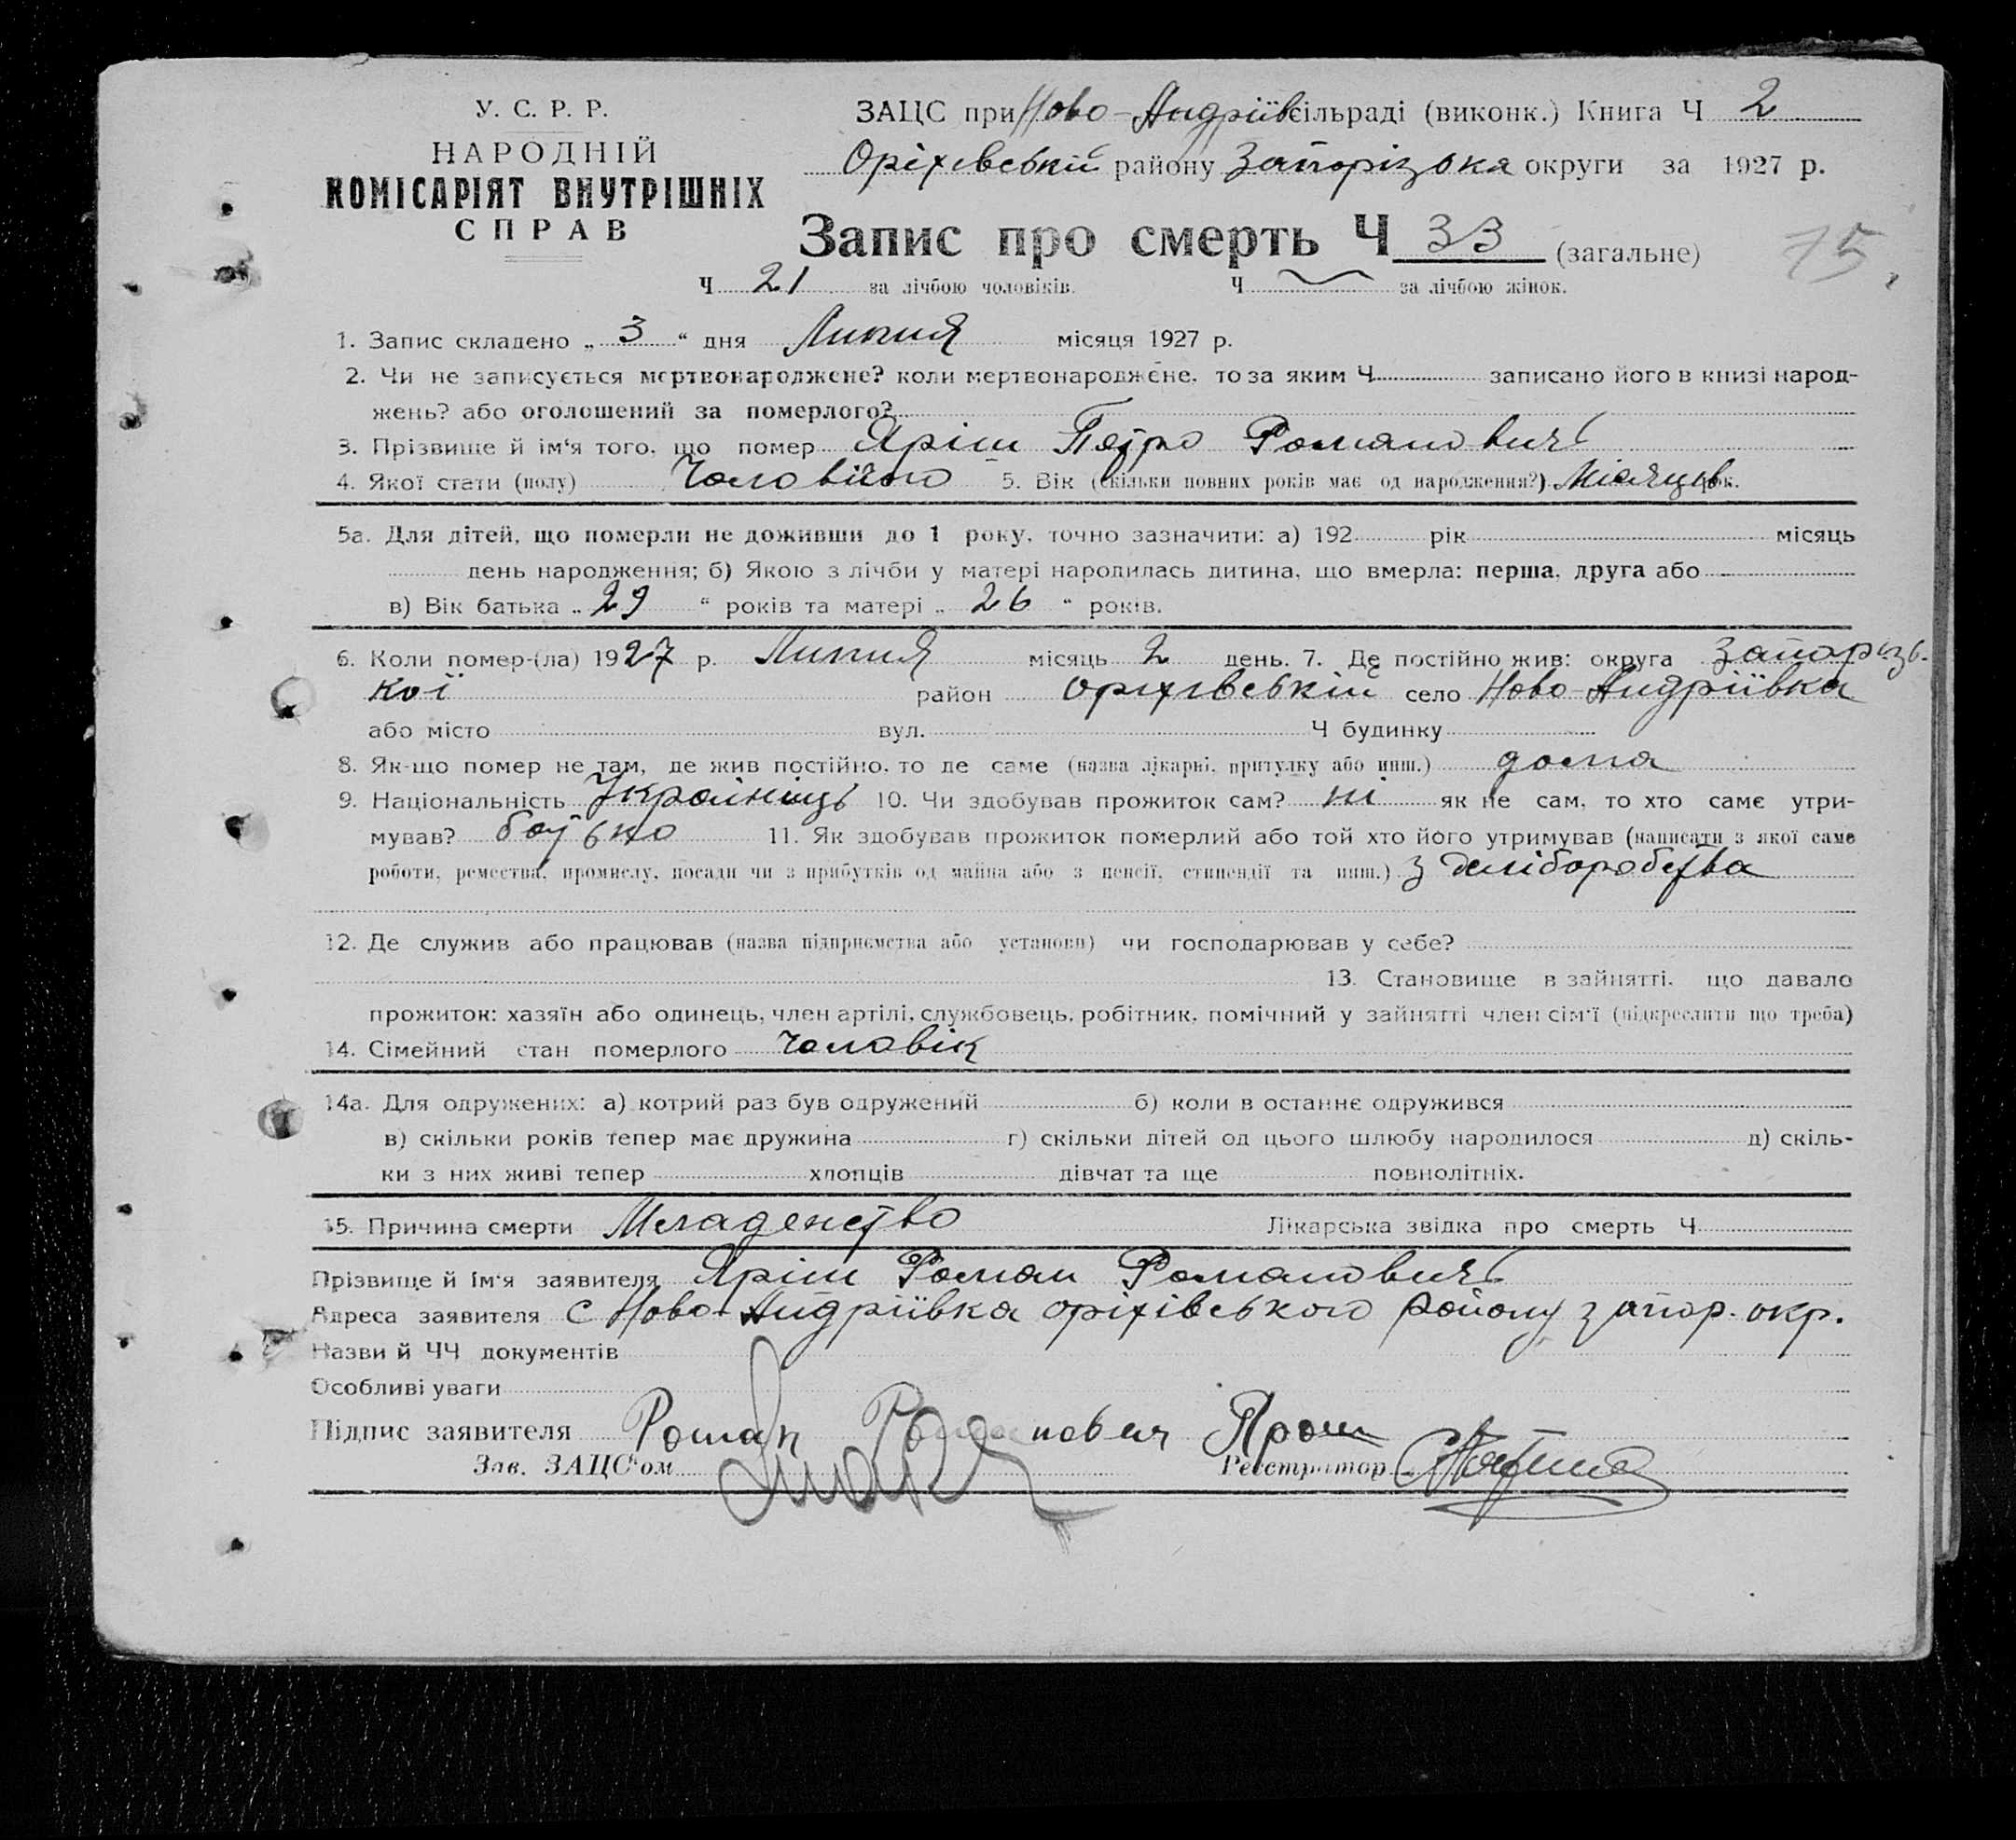 У. С. Р. Р.
НАРОДНІЙ
КОМІСАРІЯТ ВНУТРІШНІХ
СПРАВ
ЗАЦС при Ново-Андріїв сільраді (виконк.) Книга Ч 2
Оріхівській району Запорізька округи за 1927 р.
Запис про смерть Ч 33 (загальне)
75
Ч 21 за лічбою чоловіків. Ч за лічбою жінок.
1. Запис складено „ 3 “ дня Липня місяця 1927 р.
2. Чи не записується мертвонароджене? коли мертвонароджене, то за яким Ч записано його в книзі народ-
жень? або оголошений за померлого?
3. Прізвище й ім'я того, що помер Яріш Петро Романович
4. Якої стати (полу) Чоловічою 5. Вік (скільки повних років має од народження?) Місяців рок.
5а. Для дітей, що померли не доживши до 1 року, точно зазначити: а) 192 рік місяць
день народження; б) Якою з лічби у матері народилась дитина, що вмерла: перша, друга або
в) Вік батька „ 29 “ років та матері „ 26 “ років.
6. Коли помер-(ла) 1927 р. Липня місяць 2 день. 7. Де постійно жив: округа Запорізь-
кої район Оріхівській село Ново-Андріївка
або місто вул. Ч будинку
8. Як-що помер не там, де жив постійно, то де саме (назва лікарні, притулку або инш.) дома
9. Національність Українець 10. Чи здобував прожиток сам? ні як не сам, то хто саме утри-
мував? батько 11. Як здобував прожиток померлий або той хто його утримував (написати з якої саме
роботи, ремества, промислу, посади чи з прибутків од майна або з пенсії, стипендії та инш.) з
12. Де служив або працював (назва підприємства або установи) чи господарював у себе?
13. Становище в зайнятті, що давало
прожиток: хазяїн або одинець, член артілі, службовець, робітник, помічний у зайнятті член сім'ї (підкреслити що треба)
14. Сімейний стан померлого чоловік
14а. Для одружених: а) котрий раз був одружений б) коли в останнє одружився
в) скільки років тепер має дружина г) скільки дітей од цього шлюбу народилося д) скіль-
ки з них живі тепер хлопців дівчат та ще повнолітніх.
15. Причина смерти Младенство Лікарська звідка про смерть Ч
Прізвище й ім'я заявителя Яріш Роман Романович
Адреса заявителя с Ново-Андріївка Оріхівського району Запор. окр.
Назви й ЧЧ документів
Особливі уваги
Підпис заявителя Роман Романович Ярош
Зав. ЗАЦС'ом Реєстратор